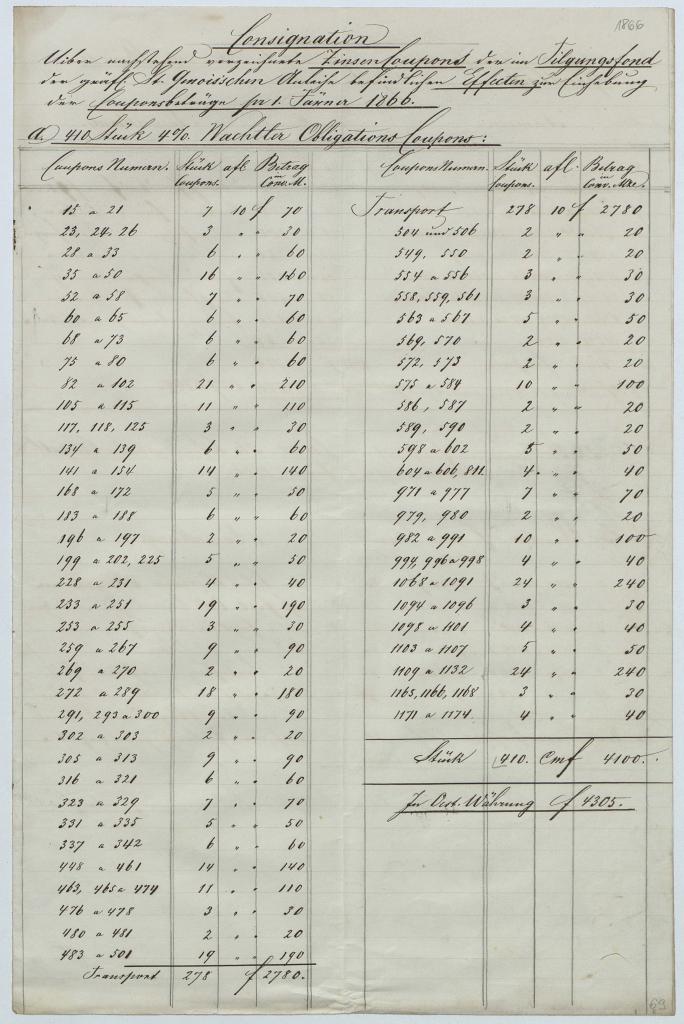 1866
Consignation
Uiber nachstehend verzeichnete Zinsen Coupons der im Tilgungsfond
der gräfl. St. Genoisischen Anleihe befindlichen Effecten zur Einhebung
der Couponsbeträge pr 1. Jänner 1866.
a 410 Stück 4% Obligations Coupons:
Coupons Numern. Stück Coupons. a fl Betrag in Conv. M.
15 a 21 7 10 f 70
23, 24, 26 3 " " 30
28 a 33 6 " " 60
35 a 50 16 " " 160
52 a 58 7 " " 70
60 a 65 6 " " 60
68 a 73 6 " " 60
75 a 80 6 " " 60
82 a 102 21 " " 210
105 a 115 11 " " 110
117, 118, 125 3 " " 30
134 a 139 6 " " 60
141 a 154 14 " " 140
168 a 172 5 " " 50
183 a 188 6 " " 60
196 a 197 2 " " 20
199 a 202, 225 5 " " 50
228 a 231 4 " " 40
233 a 251 19 " " 190
253 a 255 3 " " 30
259 a 267 9 " " 90
269 a 270 2 " " 20
272 a 289 18 " " 180
291, 293 a 300 9 " " 90
302 a 303 2 " " 20
305 a 313 9 " " 90
316 a 321 6 " " 60
323 a 329 7 " " 70
331 a 335 5 " " 50
337 a 342 6 " " 60
448 a 461 14 " " 140
463, 465 a 474 11 " " 110
476 a 478 3 " " 30
480 a 481 2 " " 20
483 a 501 19 " " 190
Transport 278 f 2780.
Coupons Numern. Stück Coupons. a fl. Betrag in Conv. Mze.
Transport 278 10 f 2780
504 und 506 2 " " 20
549, 550 2 " " 20
554 a 556 3 " " 30
558, 559, 561 3 " " 30
563 a 567 5 " " 50
569, 570 2 " " 20
572, 573 2 " " 20
575 a 584 10 " " 100
586, 587 2 " " 20
589, 590 2 " " 20
598 a 602 5 " " 50
604 a 606, 811. 4 " " 40
971 a 977 7 " " 70
979, 980 2 " " 20
982 a 991 10 " " 100
994, 996 a 998 4 " " 40
1068 a 1091 24 " " 240
1094 a 1096 3 " " 30
1098 a 1101 4 " " 40
1103 a 1107 5 " " 50
1109 a 1132 24 " " 240
1165, 1166, 1168 3 " " 30
1171 a 1174 4 " " 40
Stück 410. Cmf 4100.
In Oest. Währung f 4305.
69